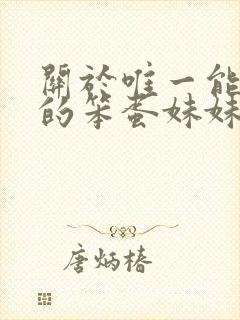 關於唯一能
的笨蛋妹妹
唐炳椿